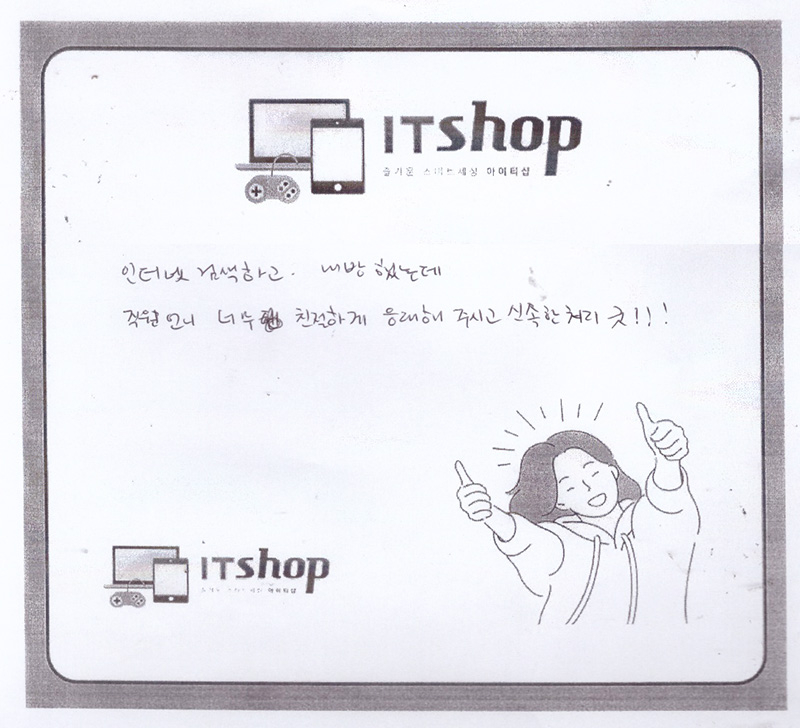 ITshop
즐거운 스마트세상 아이티샵
인터넷 검색하고. 내방 했는데
직원 언니 너무 친절하게 응대해 주시고 신속한 처리 굿!!!
ITshop
아이티샵